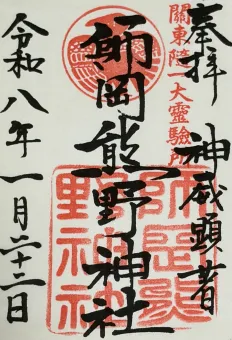 奉拝 神威顕著
關東随一大霊験所
師岡熊野神社
令和八年一月二十二日
師岡熊
野神社